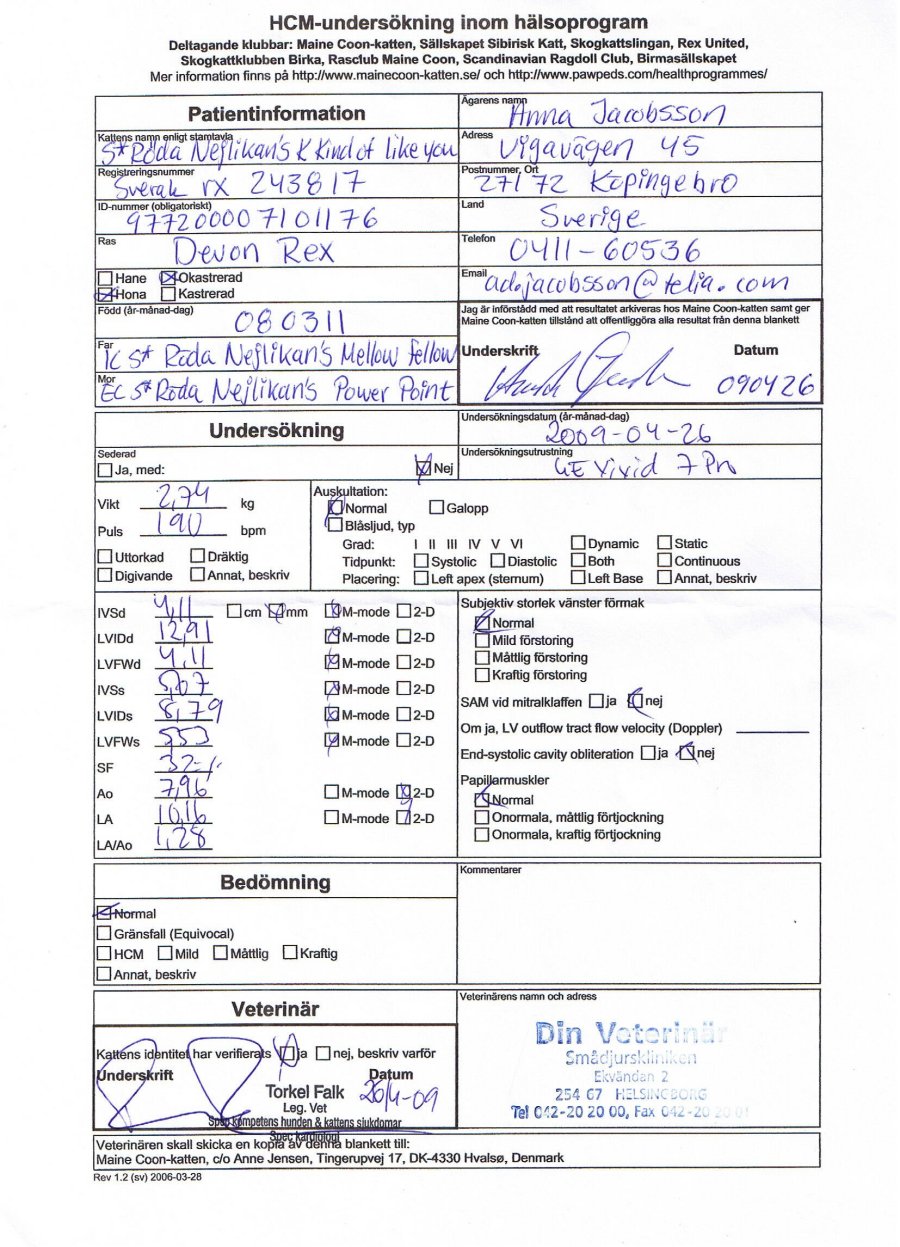 HCM-undersökning inom hälsoprogram
Deltagande klubbar: Maine Coon-katten, Sällskapet Sibirisk Katt, Skogkattslingan, Rex United,
Skogkattklubben Birka, Rasclub Maine Coon, Scandinavian Ragdoll Club, Birmasällskapet
Mer information finns på http://www.mainecoon-katten.se/ och http://www.pawpeds.com/healthprogrammes/
Patientinformation
Kattens namn enligt stamtavla
S* Röda Nejlikan's K Kind of like you
Registreringsnummer
Sverak rx 243817
ID-nummer (obligatoriskt)
977200007101176
Ras
Devon Rex
Hane Okastrerad
Hona Kastrerad
Född (år-månad-dag)
080311
Far
IC S* Röda Nejlikan's Mellow Fellow
Mor
EC S* Röda Nejlikan's Power Point
Ägarens namn
Anna Jacobsson
Adress
Vigavägen 45
Postnummer, Ort
271 72 Köpingebro
Land
Sverige
Telefon
0411-60536
Email
ad.jacobsson@telia.com
Jag är införstådd med att resultatet arkiveras hos Maine Coon-katten samt ger
Maine Coon-katten tillstånd att offentliggöra alla resultat från denna blankett
Underskrift Datum
090426
Undersökning
Sederad
Ja, med: Nej
Undersökningsdatum (år-månad-dag)
2009-04-26
Undersökningsutrustning
GE Vivid 7 Pro
Vikt 2,74 kg
Puls 190 bpm
Uttorkad Dräktig
Digivande Annat, beskriv
Auskultation:
Normal Galopp
Blåsljud, typ
Grad: I II III IV V VI Dynamic Static
Tidpunkt: Systolic Diastolic Both Continuous
Placering: Left apex (sternum) Left Base Annat, beskriv
IVSd 4,11 cm mm M-mode 2-D
LVIDd 12,91 M-mode 2-D
LVFWd 4,11 M-mode 2-D
IVSs 5,07 M-mode 2-D
LVIDs 8,79 M-mode 2-D
LVFWs 553 M-mode 2-D
SF 32-/.
Ao 7,96 M-mode 2-D
LA 10,16 M-mode 2-D
LA/Ao 1,28
Subjektiv storlek vänster förmak
Normal
Mild förstoring
Måttlig förstoring
Kraftig förstoring
SAM vid mitralklaffen ja nej
Om ja, LV outflow tract flow velocity (Doppler)
End-systolic cavity obliteration ja nej
Papillarmuskler
Normal
Onormala, måttlig förtjockning
Onormala, kraftig förtjockning
Bedömning
Normal
Gränsfall (Equivocal)
HCM Mild Måttlig Kraftig
Annat, beskriv
Kommentarer
Veterinär
Kattens identitet har verifierats ja nej, beskriv varför
Underskrift Datum
20/4-09
Torkel Falk
Leg. Vet
Spec kompetens hunden & kattens sjukdomar
Spec kardiologi
Veterinärens namn och adress
Din Veterinär
Smådjurskliniken
Ekvändan 2
254 67 HELSINGBORG
Tel 042-20 20 00, Fax 042-20 20 01
Veterinären skall skicka en kopia av denna blankett till:
Maine Coon-katten, c/o Anne Jensen, Tingerupvej 17, DK-4330 Hvalsø, Denmark
Rev 1.2 (sv) 2006-03-28